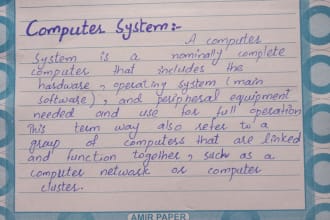 Computer System:-
A computer
System is a nominally complete
computer that includes the
hardware, operating system (main
software), and peripheral equipment
needed and use for full operation
This term way also refer to a
group of computers that are linked
and function together, such as a
computer network or computer
cluster.
AMIR PAPER